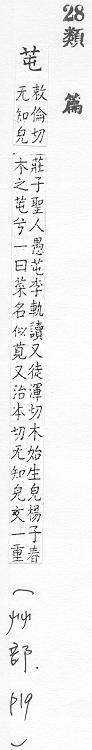 28類
篇
芚
敕倫切
无知皃
莊子聖人愚芚李軌讀又徒渾切木始生皃楊子春
木之芚兮一曰菜名似莧又治本切无知皃文一重
(艸部.P19)